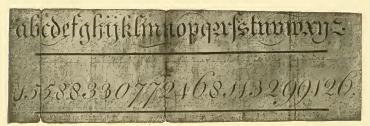 abcdefghijklmnopqrſstuvwxyz.
1.5588330772468.113299126.